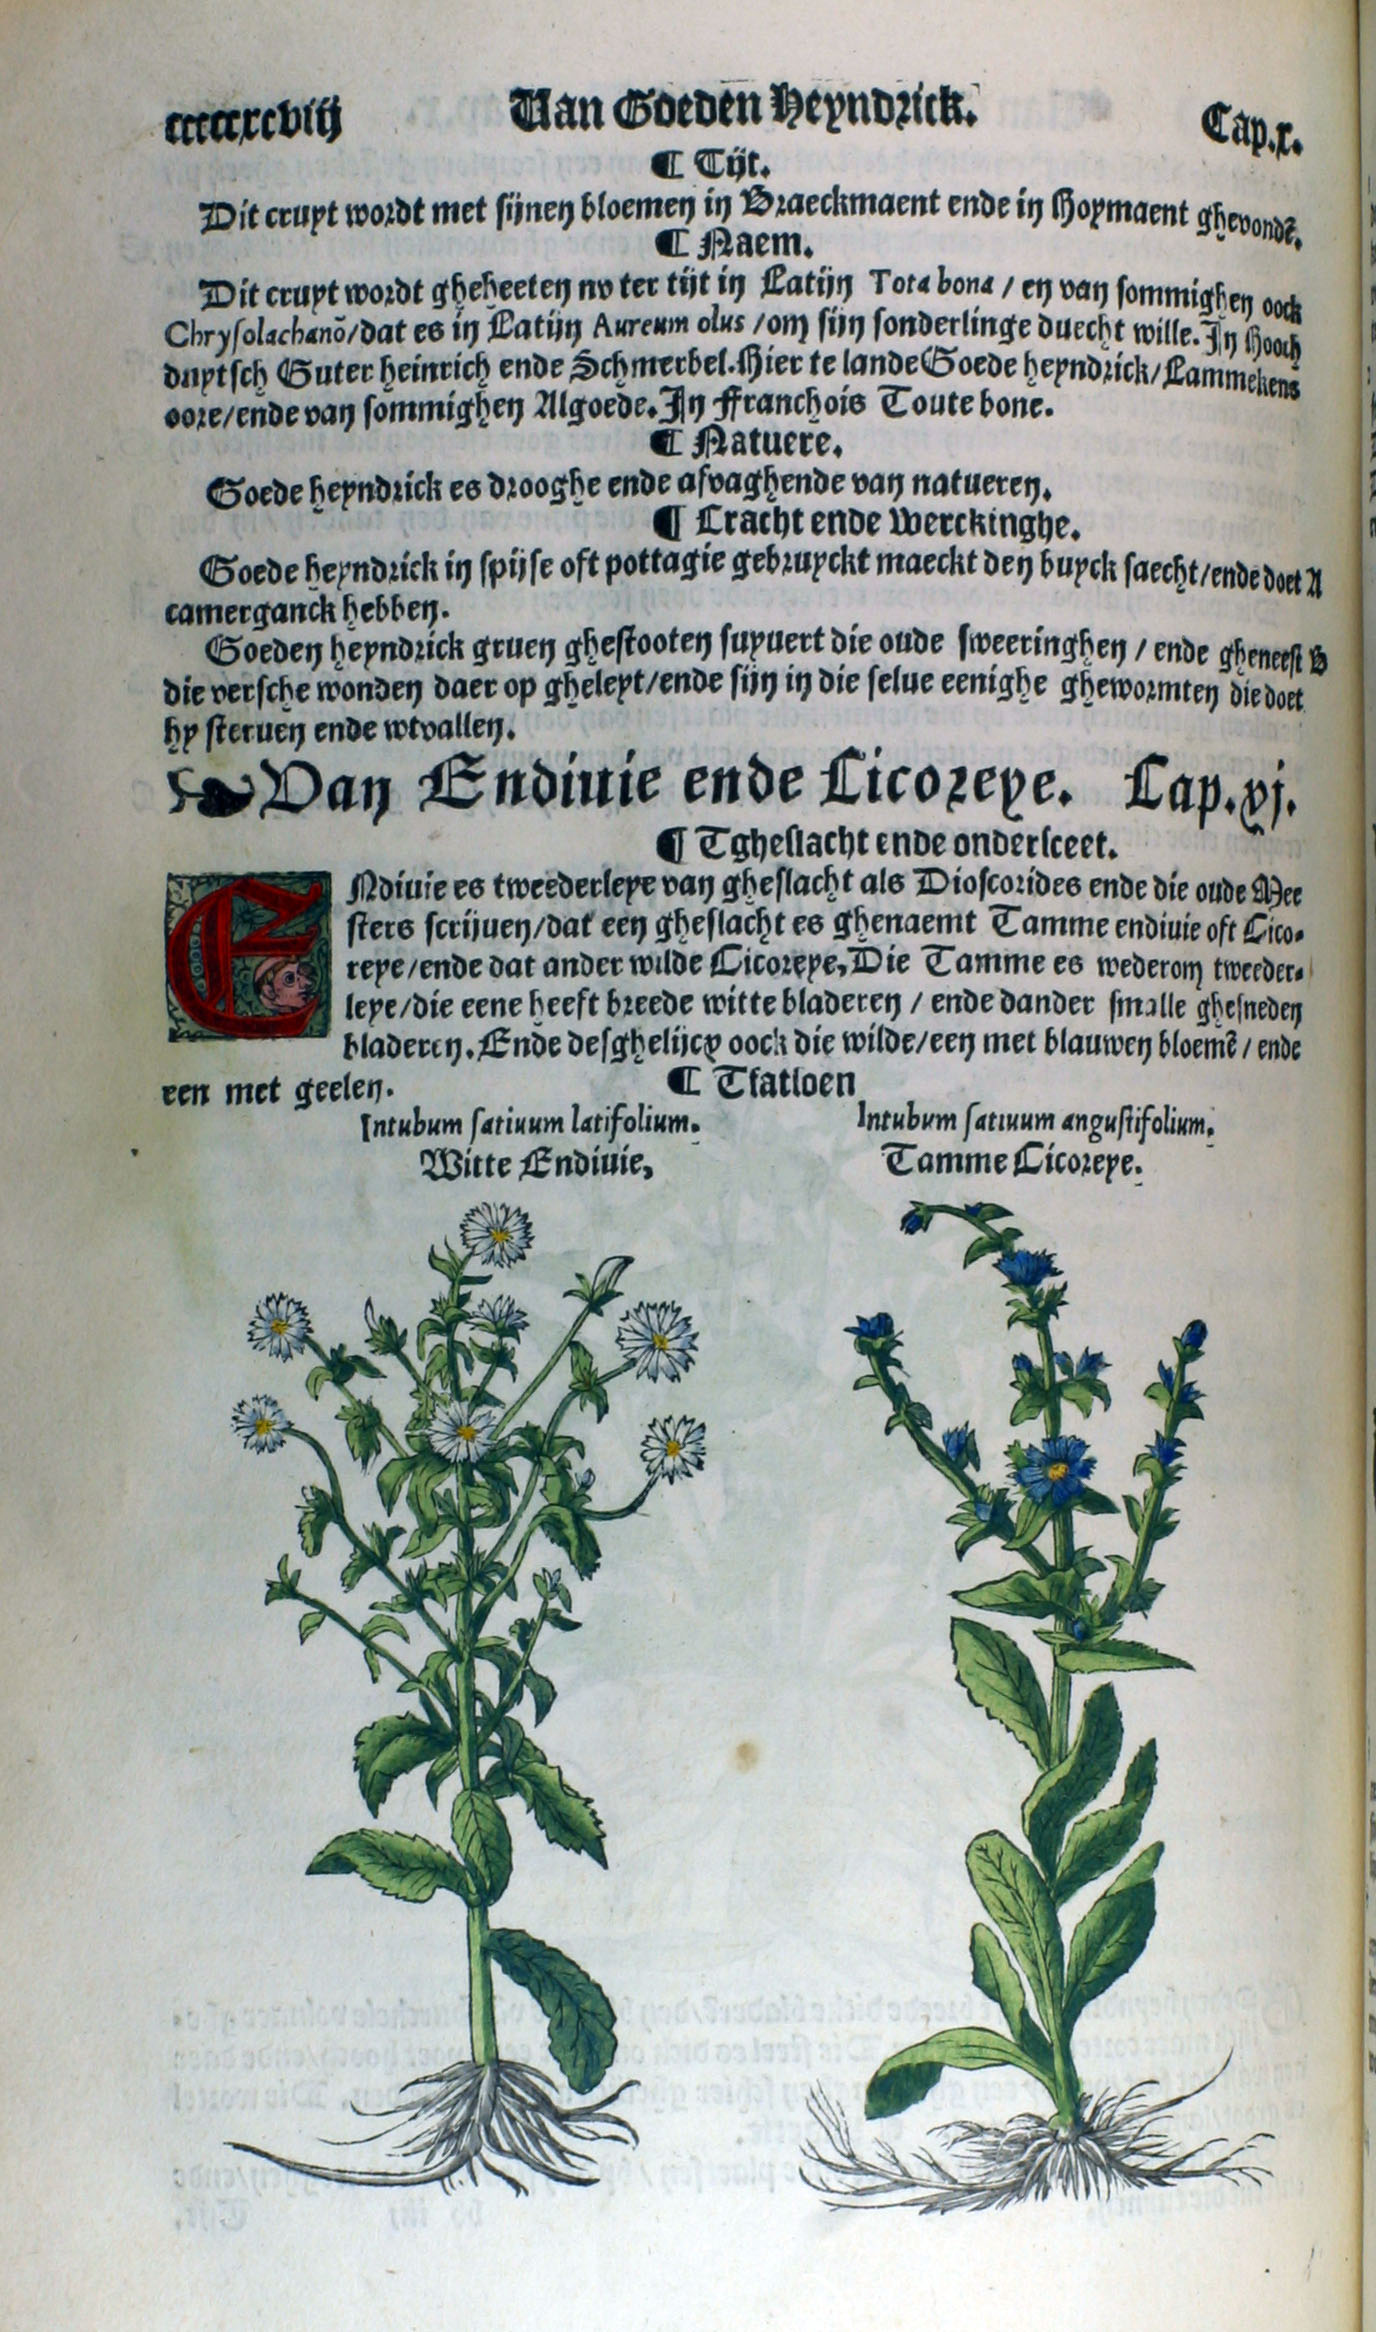 ccccxcviij Van Goeden Heyndrick. Cap.x.
¶ Tijt.
Dit cruyt wordt met sijnen bloemen in Braeckmaent ende in Hoymaent ghevondē.
¶ Naem.
Dit cruyt wordt gheheeten nv ter tijt in Latijn Tota bona / en van sommighen oock
Chrysolachanō/dat es in Latijn Aureum olus /om sijn sonderlinge duecht wille. In Hooch
duytsch Guter heinrich ende Schmerbel. Hier te lande Goede heyndrick/Lammekens
oore/ende van sommighen Algoede. In Franchois Toute bone.
¶ Natuere.
Goede heyndrick es drooghe ende afvaghende van natueren.
¶ Cracht ende Werckinghe.
Goede heyndrick in spijse oft pottagie gebruyckt maeckt den buyck saecht/ende doet A
camerganck hebben.
Goeden heyndrick gruen ghestooten suyuert die oude sweeringhen / ende gheneest B
die versche wonden daer op gheleyt/ende sijn in die selue eenighe ghewormten die doet
hy steruen ende wtvallen.
Van Endiuie ende Cicoreye. Cap.xj.
¶ Tgheslacht ende ondersceet.
ENdiuie es tweederleye van gheslacht als Dioscorides ende die oude Mee
sters scrijuen/dat een gheslacht es ghenaemt Tamme endiuie oft Cico-
reye/ende dat ander wilde Cicoreye, Die Tamme es wederom tweeder-
leye/die eene heeft breede witte bladeren / ende dander smalle ghesneden
bladeren. Ende desghelijcx oock die wilde/een met blauwen bloemē / ende
een met geelen. ¶ Tfatsoen
Intubum satiuum latifolium. Intubum satiuum angustifolium.
Witte Endiuie, Tamme Cicoreye.